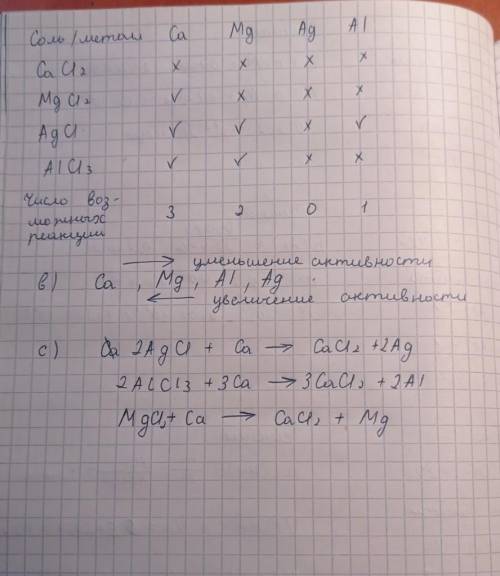 Соль/металл Ca Mg Ag Al
CaCl2 x x x x
MgCl2 ✓ x x x
AgCl ✓ ✓ x ✓
AlCl3 ✓ ✓ x x
Число воз-
можных
реакций 3 2 0 1
→ уменьшение активности
b) Ca, Mg, Al, Ag.
← увеличение активности
c) 2AgCl + Ca → CaCl2 + 2Ag
2AlCl3 + 3Ca → 3CaCl2 + 2Al
MgCl2 + Ca → CaCl2 + Mg